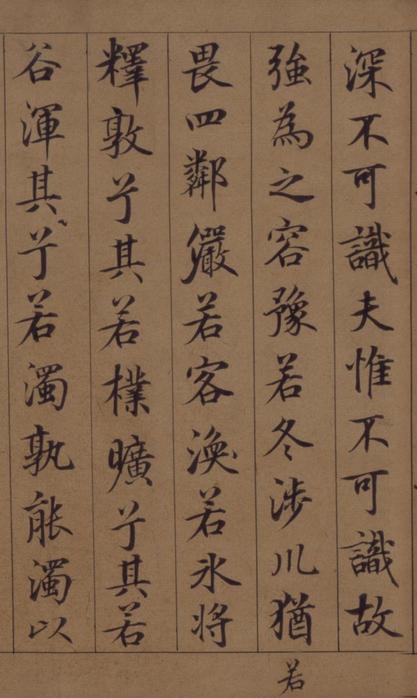 深不可識夫惟不可識故
強為之容豫若冬涉川猶
若
畏四鄰儼若客渙若氷將
釋敦兮其若樸曠兮其若
谷渾其兮若濁孰能濁以